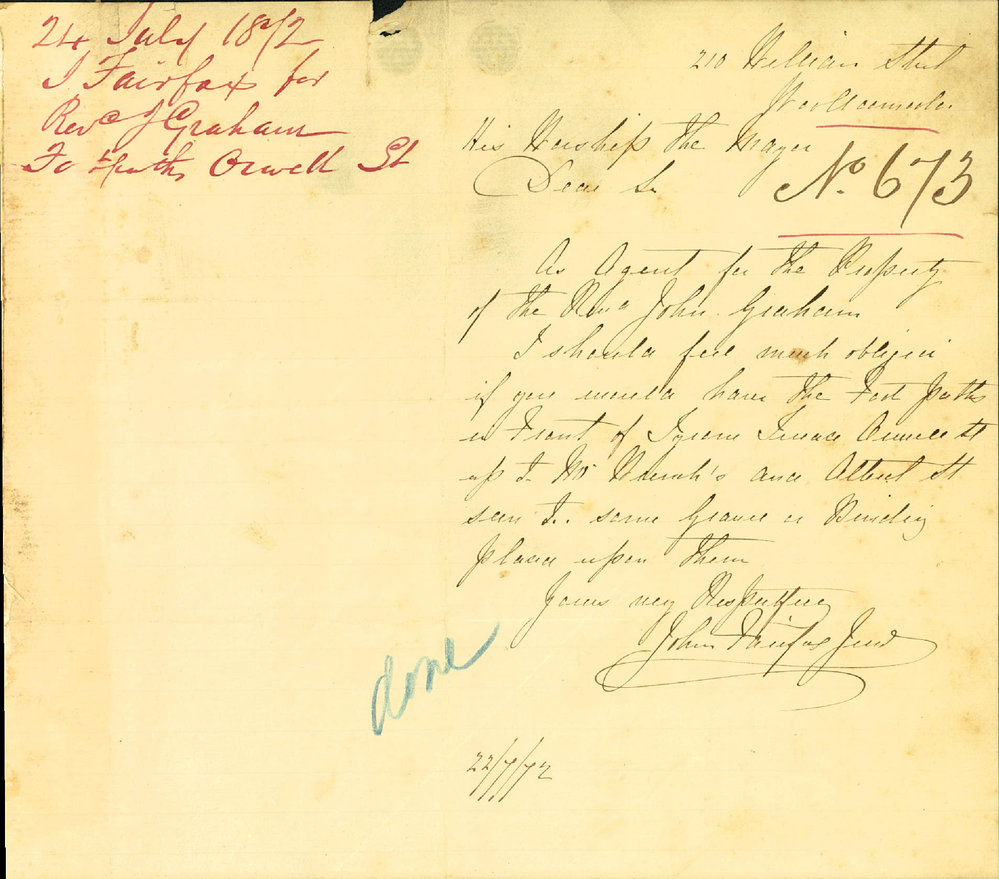 24 July 1872
J Fairfax for
Revd J Graham
Footpaths Orwell St
210 William Street
Woolloomooloo
His Worship the Mayor
Dear Sir
No. 673
As Agent for the Property
of the Revd John Graham
I should feel much obliged
if you would have the Foot paths
in Front of Tyrone Terrace Orwell St
up to Mr and Albert St
seen to. some Gravel or Binding
placed upon them
Yours very Respectfully
John Fairfax Junr
done
22/7/72